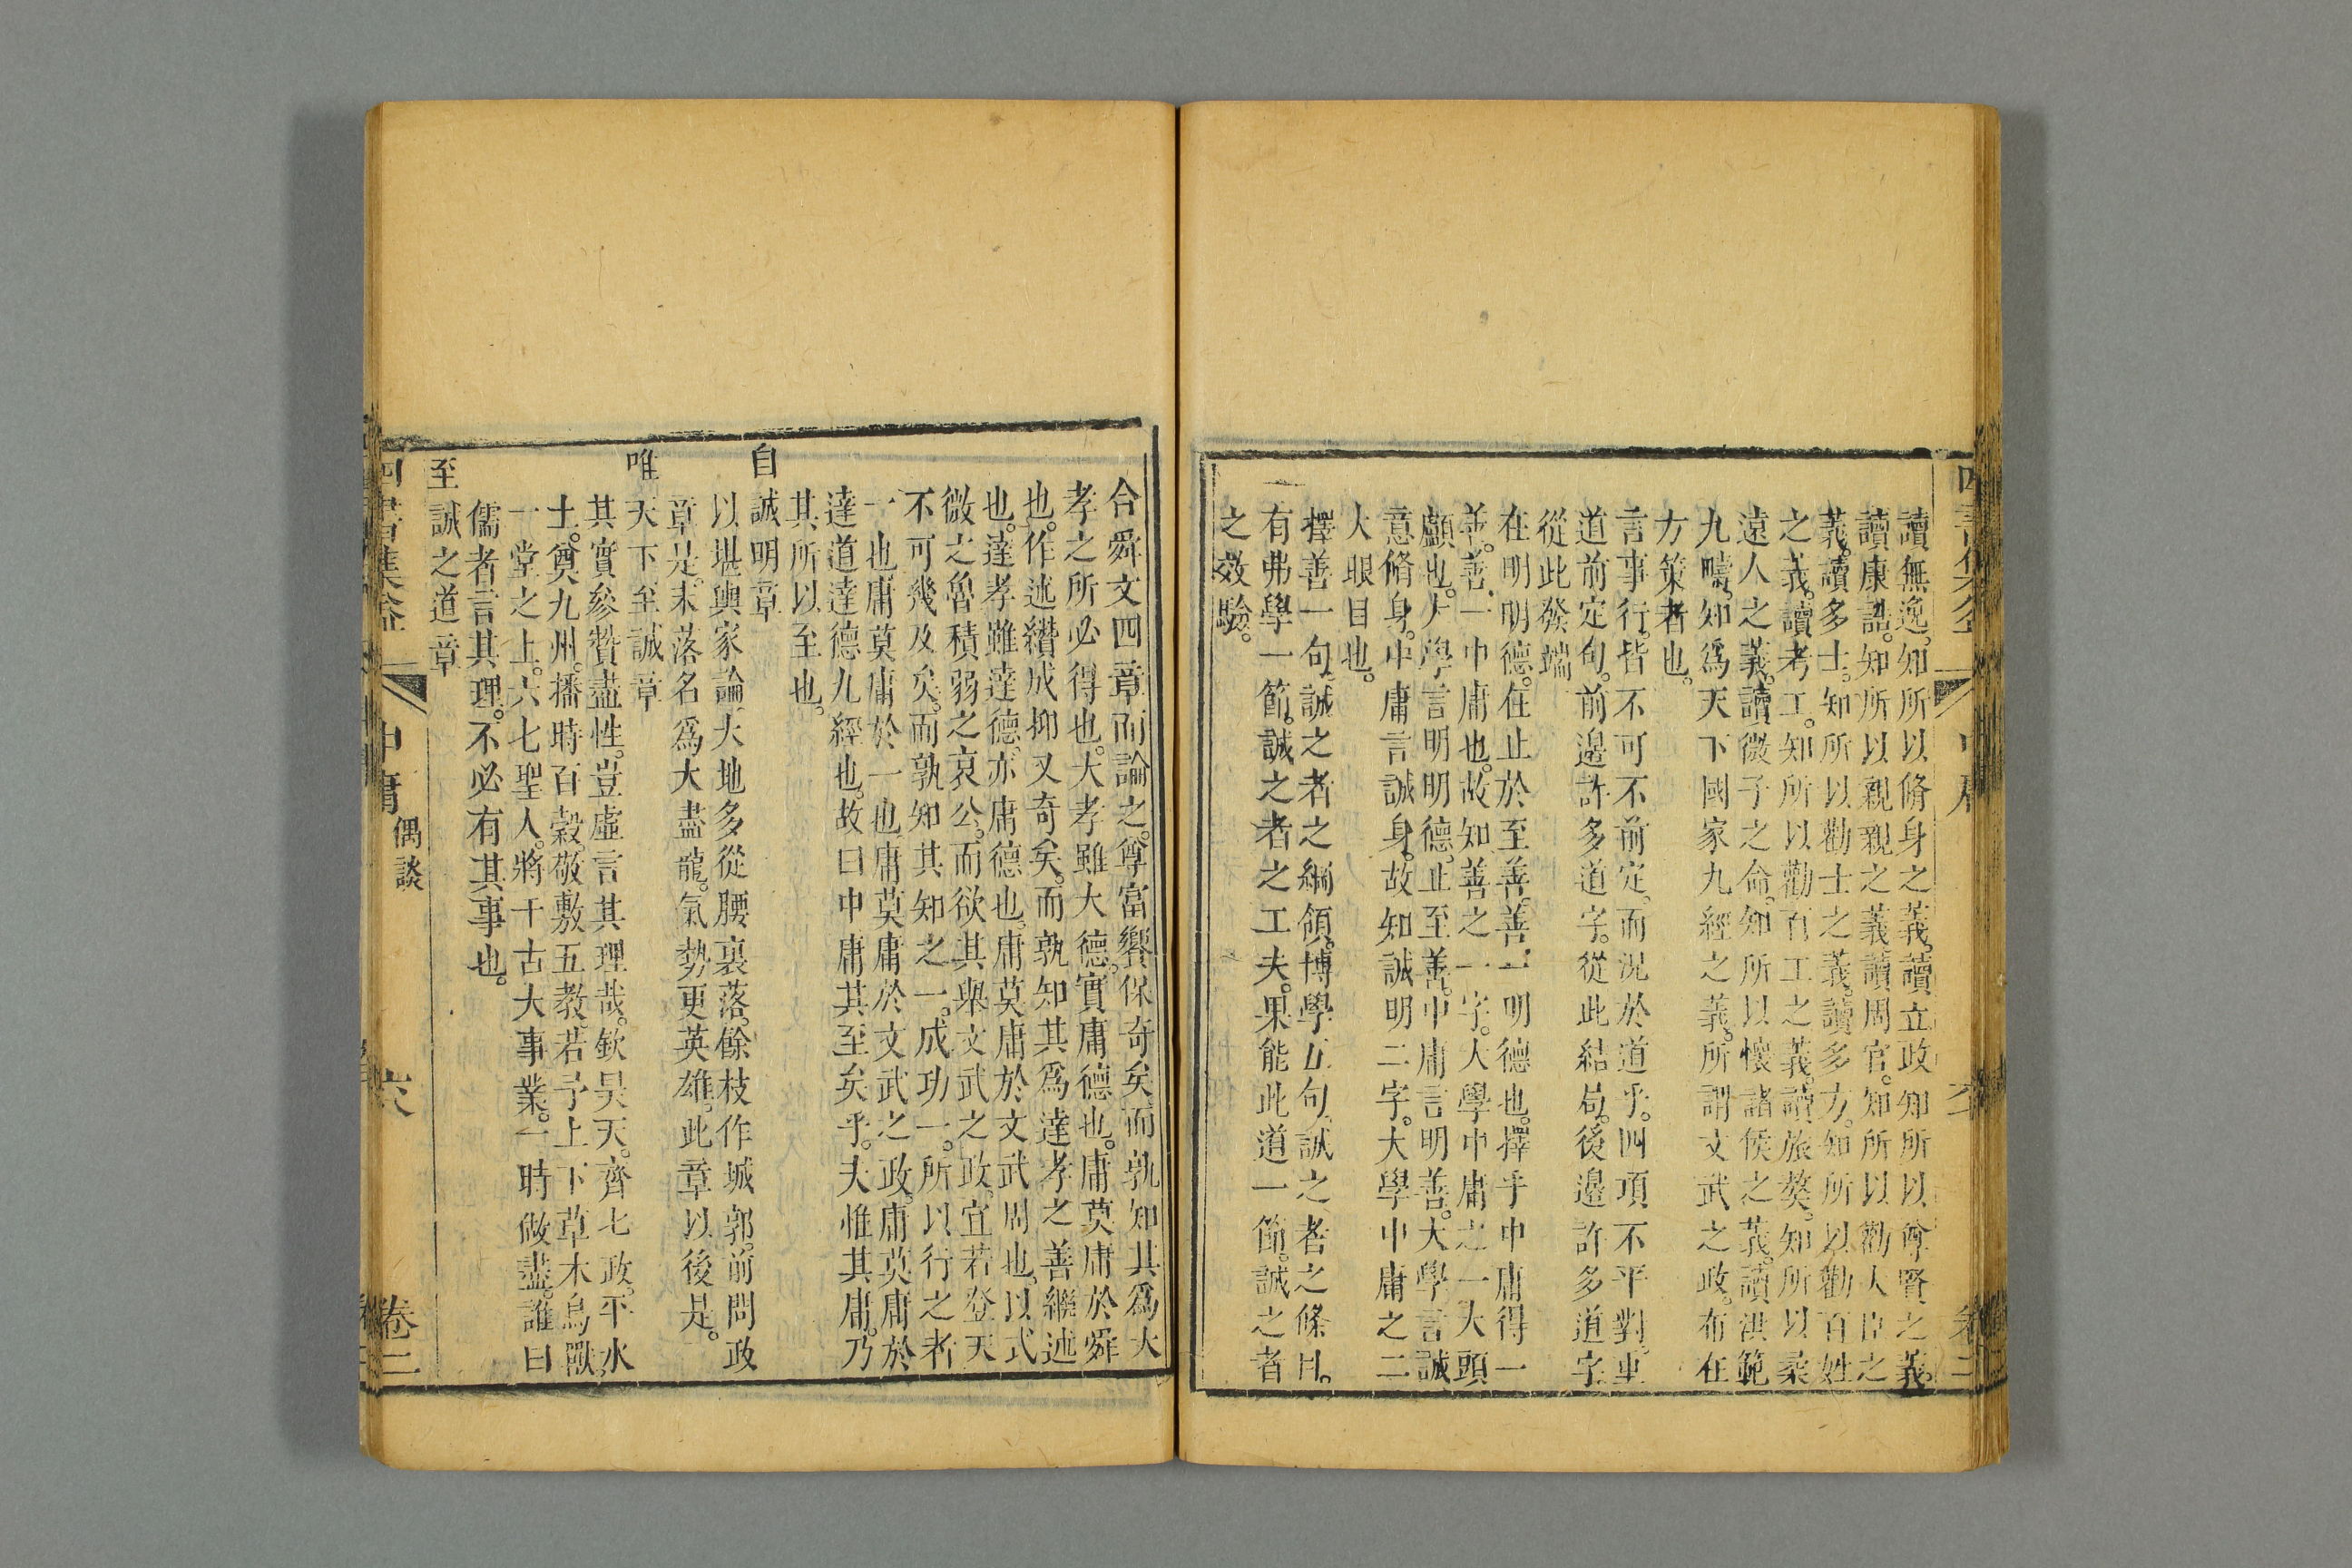 讀無逸。知所以脩身之義。讀立政。知所以尊賢之義。
讀康誥。知所以親親之義。讀周官。知所以勸大臣之
義。讀多士。知所以勸士之義。讀多方。知所以勸百姓
之義。讀考工。知所以勸百工之義。讀旅獒。知所以柔
遠人之義。讀微子之命。知所以懷諸侯之義。讀洪範
九疇。知爲天下國家九經之義。所謂文武之政。布在
方策者也。
言事行。皆不可不前定。而況於道乎。四項不平對。重
道前定句。前邊許多道字。從此結局。後邊許多道字
從此發端
在明明德。在止於至善。善一明德也。擇乎中庸得一
善。善一中庸也。故知善之一字。大學中庸之一大頭
顱也。大學言明明德。止至善。中庸言明善。大學言誠
意脩身。中庸言誠身。故知誠明二字。大學中庸之二
大眼目也。
擇善一句。誠之者之綱領。博學五句。誠之者之條目。
有弗學一節。誠之者之工夫。果能此道一節。誠之者
之效驗。
合舜文四章而論之。尊富饗保奇矣。而孰知其爲大
孝之所必得也。大孝雖大德。實庸德也。庸莫庸於舜
也。作述纘成抑又奇矣。而孰知其爲達孝之善繼述
也。達孝雖達德。亦庸德也。庸莫庸於文武周也。以式
微之魯積弱之哀公。而欲其舉文武之政。宜若登天
不可幾及矣。而孰知其知之一。成功一。所以行之者
一也庸莫庸於一也庸莫庸於文武之政。庸莫庸於
達道達德九經也。故曰中庸其至矣乎。夫惟其庸。乃
其所以至也。
自誠明章
以堪輿家論大地多從腰裏落。餘枝作城郭。前問政
章是。末落名爲大盡龍。氣勢更英雄。此章以後是。
唯天下至誠章
其實參贊盡性。豈虛言其理哉。欽昊天。齊七政。平水
土。奠九州。播時百穀。敬敷五教。若予上下草木鳥獸。
一堂之上。六七聖人。將千古大事業。一時做盡。誰曰
儒者言其理。不必有其事也。
至誠之道章
中庸 偶談 六 卷二